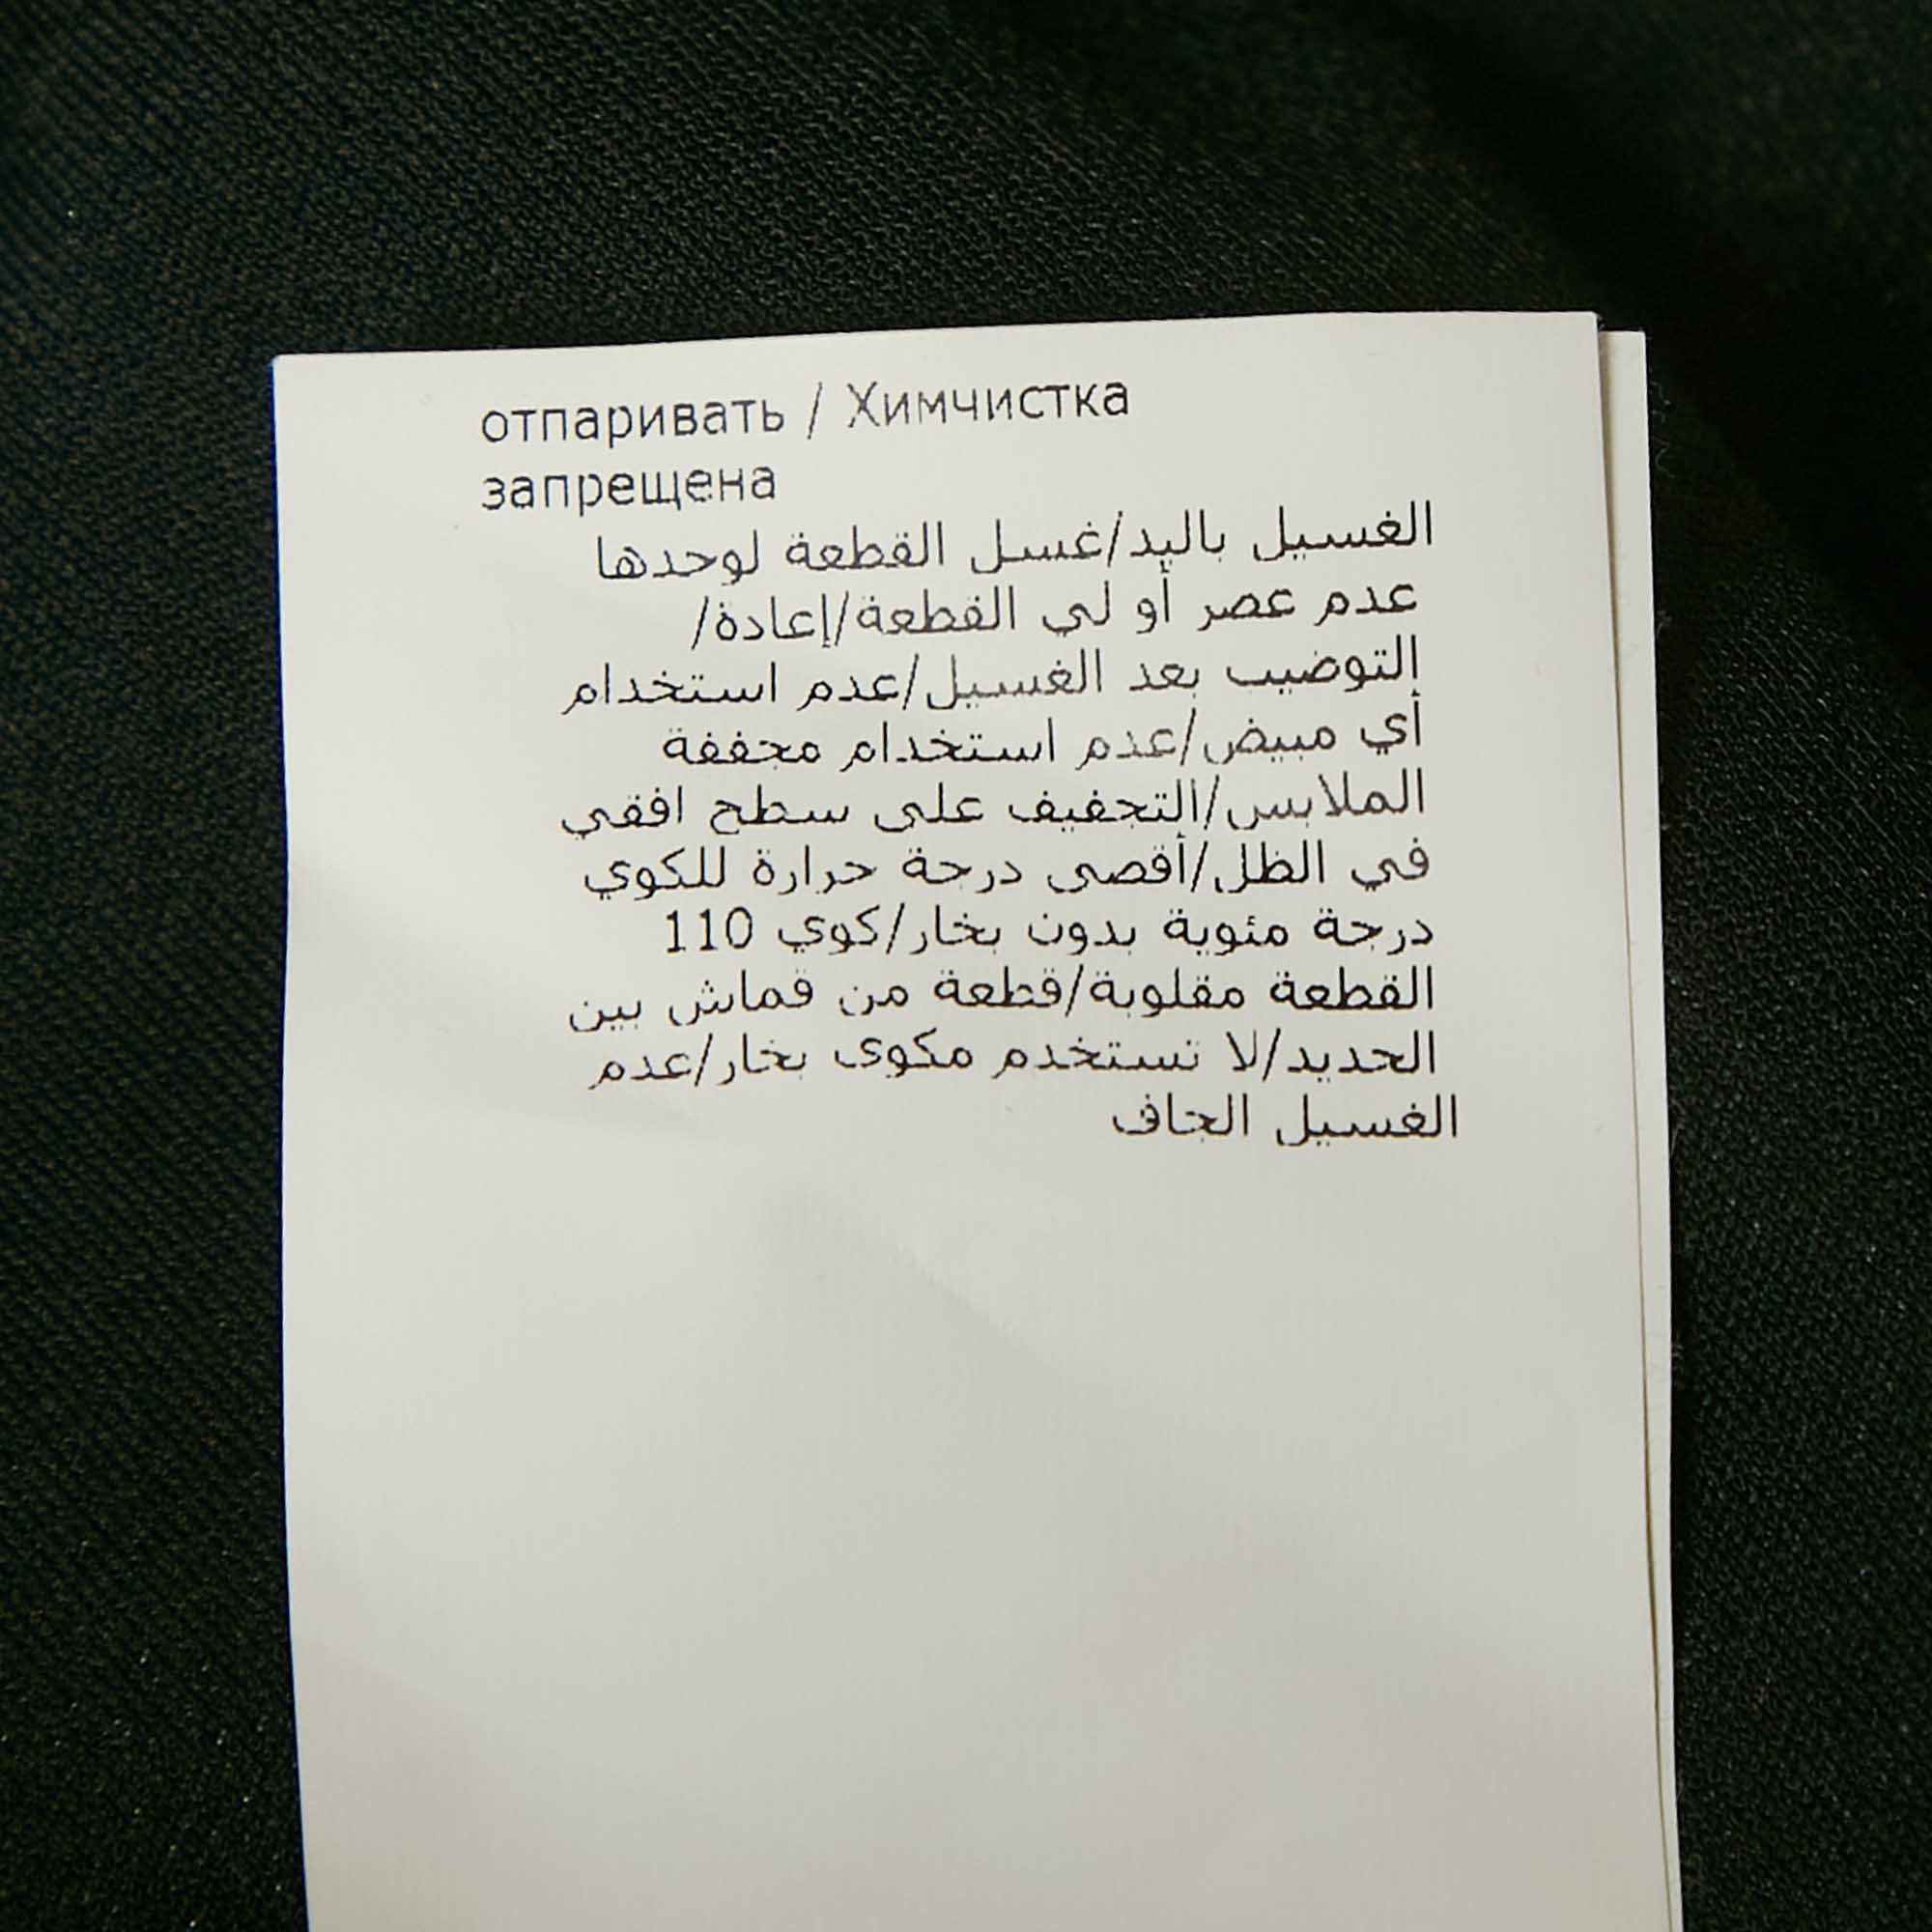 отпаривать / Химчистка
запрещена
الغسيل باليد/غسل القطعة لوحدها
عدم عصر أو لي القطعة/إعادة/
التوضيب بعد الغسيل/عدم استخدام
أي مبيض/عدم استخدام مجففة
الملابس/التجفيف على سطح افقي
في الظل/أقصى درجة حرارة للكوي
درجة مئوية بدون بخار/كوي 110
القطعة مقلوبة/قطعة من قماش بين
الحديد/لا تستخدم مكوى بخار/عدم
الغسيل الجاف